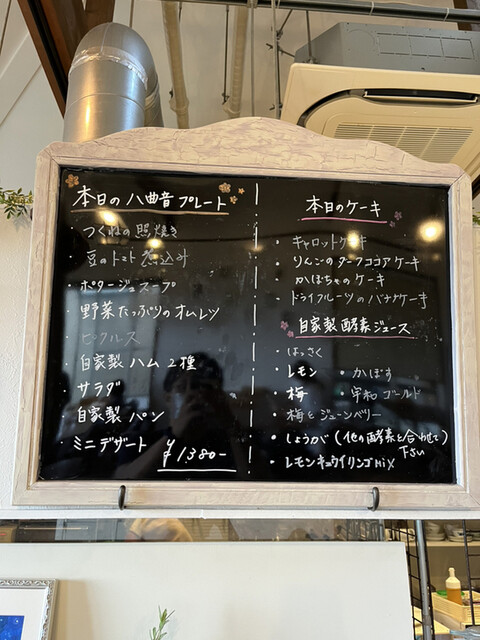 本日の八曲音プレート
・つくねの照焼き
・豆のトマト煮込み
・ポタージュスープ
・野菜たっぷりのオムレツ
・ピクルス
・自家製ハム2種
・サラダ
・自家製パン
・ミニデザート
¥1380-
本日のケーキ
・キャロットケーキ
・りんごのダークココアケーキ
・かぼちゃのケーキ
・ドライフルーツのバナナケーキ
自家製酵素ジュース
・はっさく
・レモン ・かぼす
・梅 ・宇和ゴールド
・梅とジューンベリー
・しょうが(他の酵素と合わせて下さい)
・レモンキュウイリンゴMIX